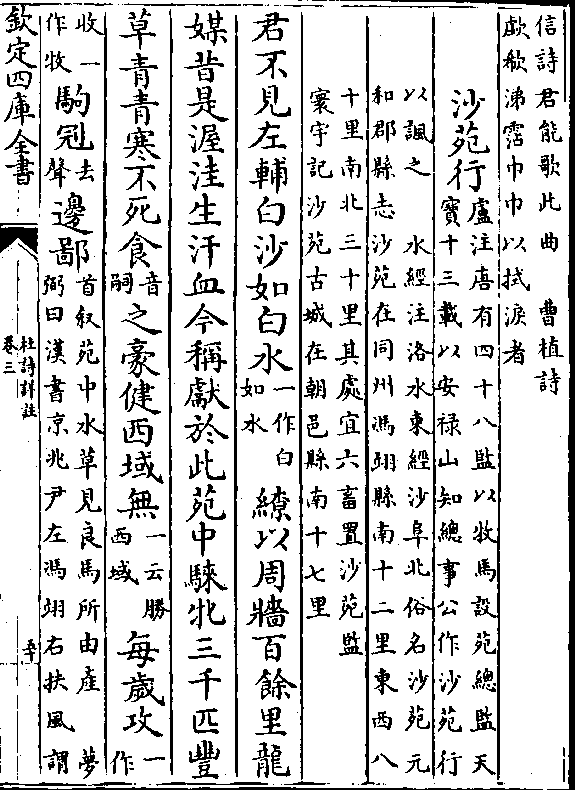 信詩君能歌此曲　曹植詩
歔欷涕霑巾巾以拭淚者
沙苑行
盧注唐有四十八監以牧馬設苑總監天
寶十三載以安禄山知總事公作沙苑行
以諷之　水經注洛水東經沙阜北俗名沙苑元
和郡縣志沙苑在同州馮翊縣南十二里東西八
十里南北三十里其處宜六畜置沙苑監
寰宇記沙苑古城在朝邑縣南十七里
君不見左輔白沙如白水一作白如水繚以周牆百餘里龍
媒昔是渥洼生汗血今稱獻於此苑中騋牝三千匹豐
草青青寒不死食音嗣之豪健西域無一云勝西域每歲攻一作
收一作牧駒冠去聲邊鄙首叙苑中水草見良馬所由産　夢
弼曰漢書京兆尹左馮翊右扶風謂
欽定四庫全書
杜詩詳註
卷三